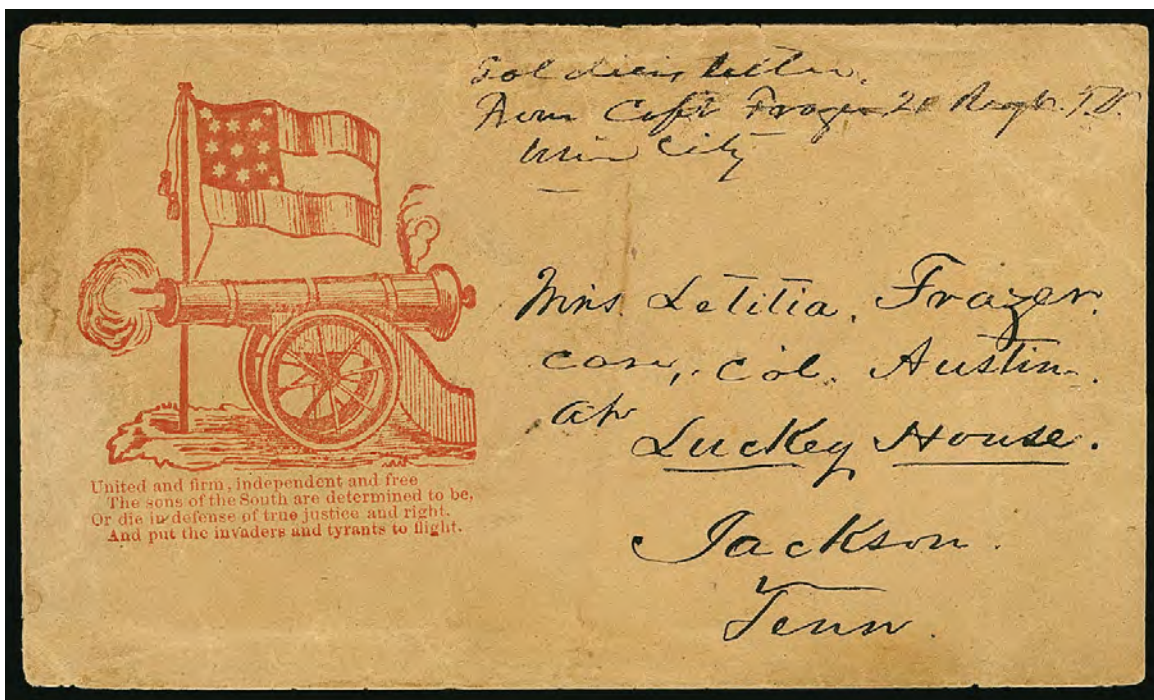 Soldiers letter.
From Capt Frazer 20 Regt. T.V.
Union City
Mrs. Letitia. Frazer.
care, Col. Austin.
at
Luckey House.
Jackson.
Tenn.
United and firm, independent and free
The sons of the South are determined to be,
Or die in defense of true justice and right.
And put the invaders and tyrants to flight.